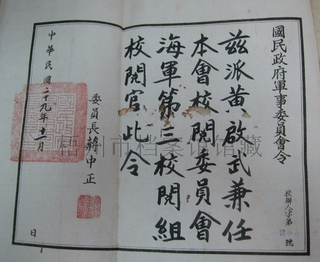 國民政府軍事委員會令
茲派黃啟武兼任
本會校閱委員會
海軍第三校閱組
校閱官此令
委員長蔣中正
中華民國二十九年十一月